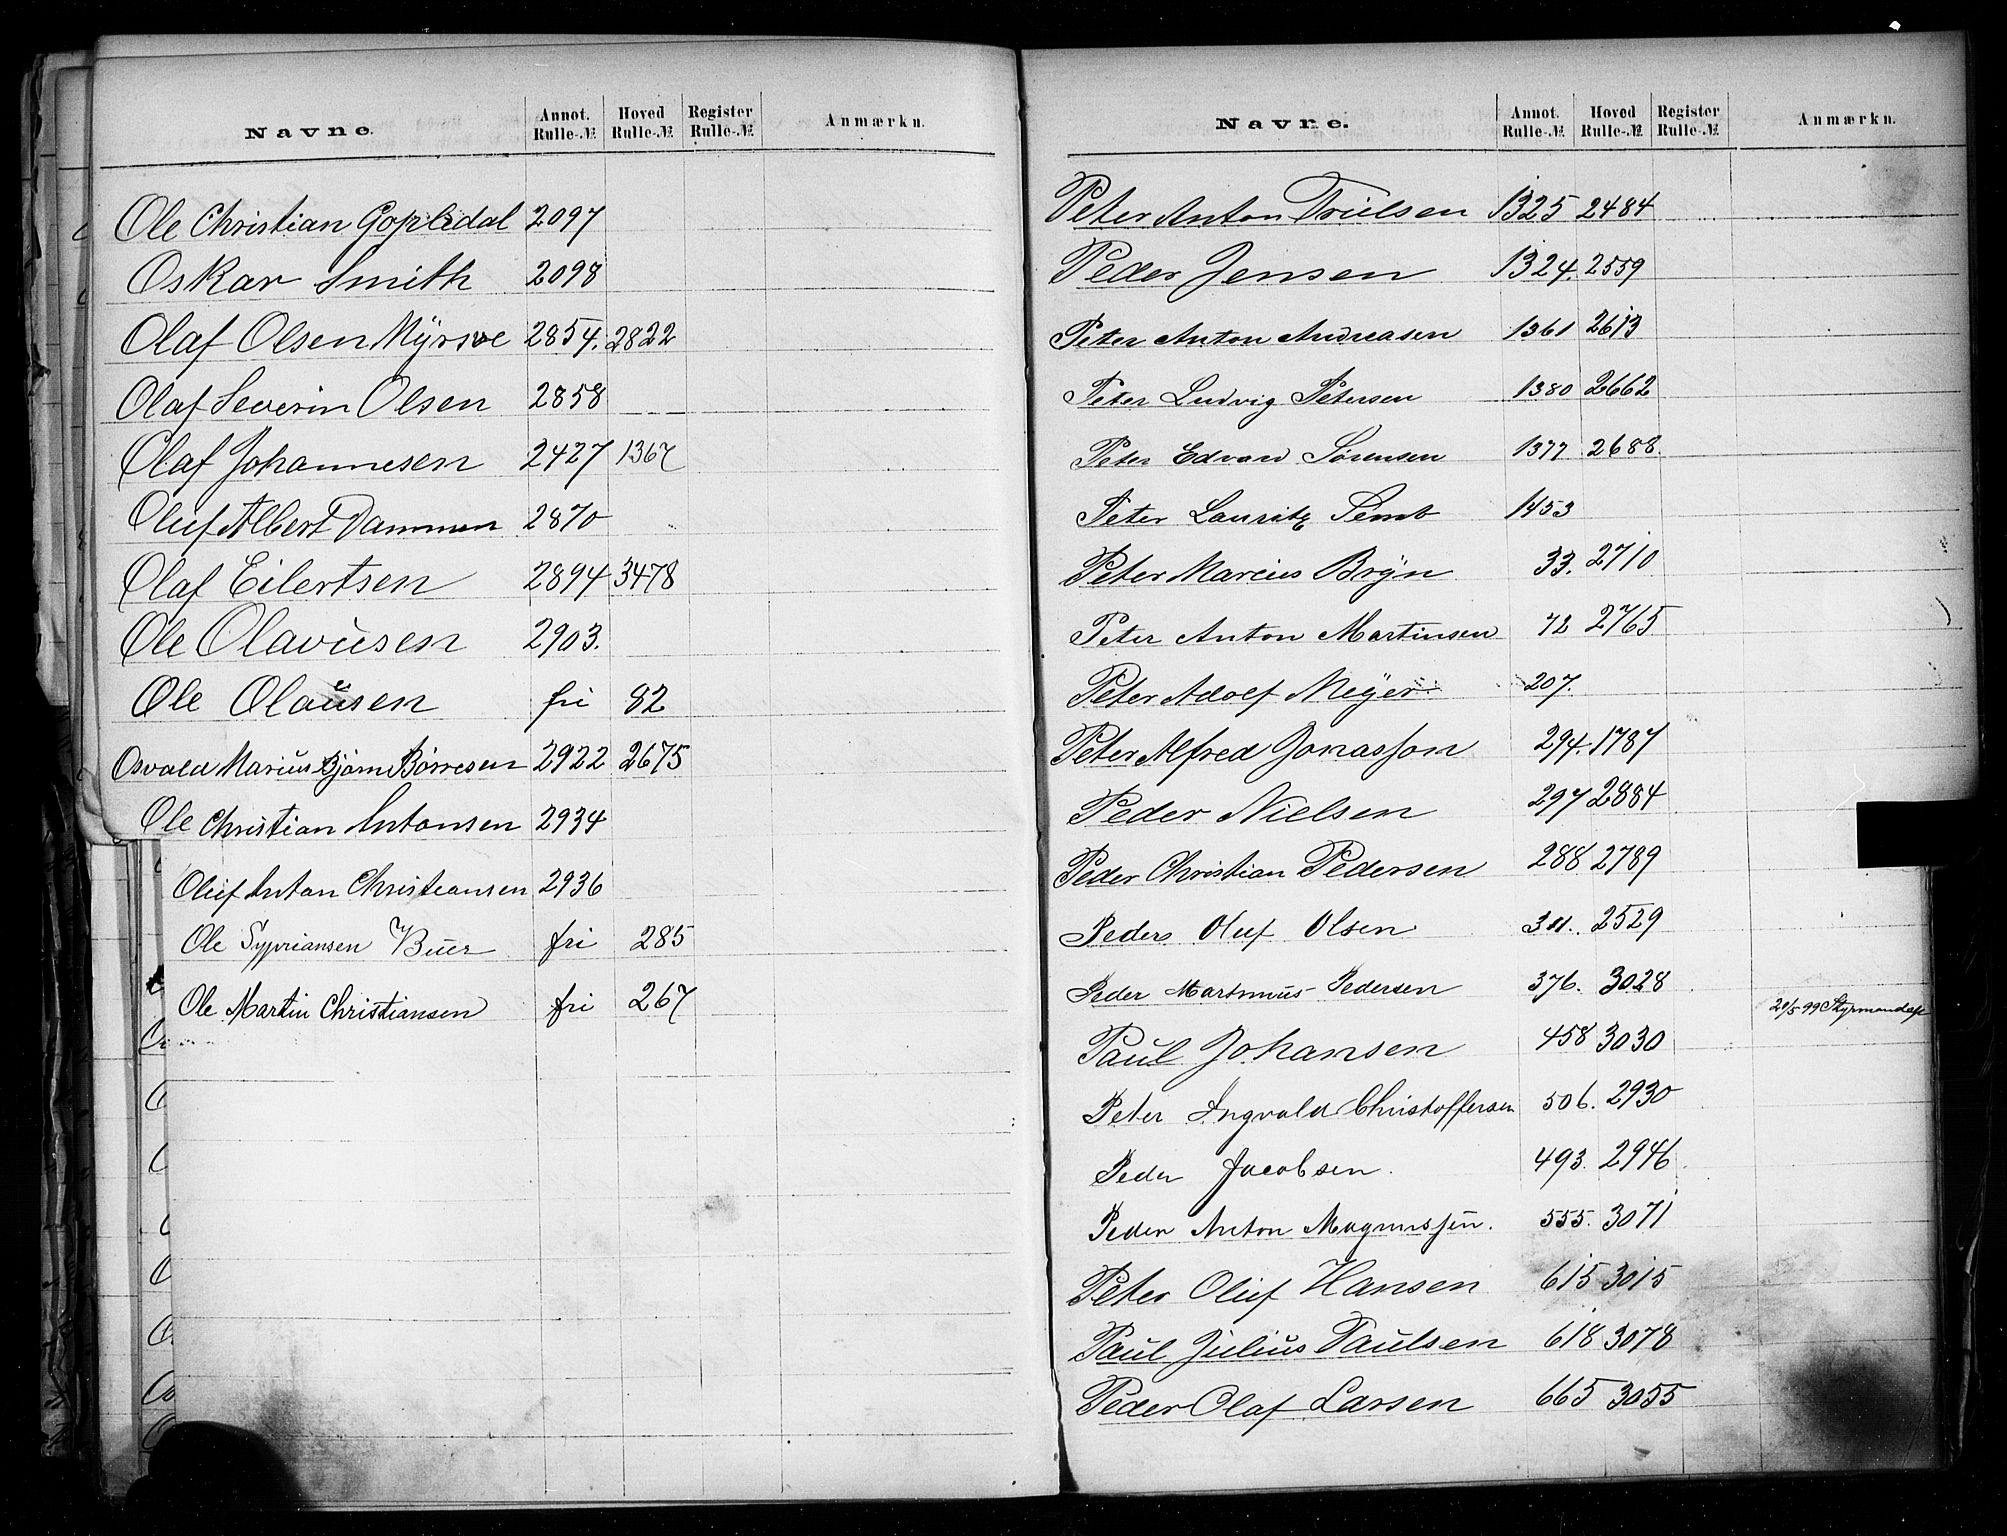 Navne. Annot. Rulle-№ Hoved Rulle-№ Register Rulle-№ Anmærkn.
Ole Christian Goplédal 2097
Oskar Smith 2098
Olaf Olsen Myrsve 2854. 2822
Olaf Severin Olsen 2858
Olaf Johannesen 2427 1367
Oluf Albert Dammen 2870
Olaf Eilertsen 2894 3478
Ole Olavusen 2903.
Ole Olausen fri 82
Osvald Marius Bjørn Børresen 2922 2675
Ole Christian Antonsen 2934
Oluf Anton Christiansen 2936
Ole Sypriansen Buer fri 285
Ole Martin Christiansen fri 267
Navne. Annot. Rulle-№ Hoved Rulle-№ Register Rulle-№ Anmærkn.
Peter Anton Trulsen 1325 2484
Peder Jensen 1324. 2559
Peter Anton Andreasen 1361 2613
Peter Ludvig Petersen 1380 2662
Peter Edvard Sørensen 1377 2688.
Peter Lauritz Semb 1453
Peter Marcius Bryn 33. 2710
Peter Anton Martinsen 72 2765
Peter Adolf Meyer 207.
Peter Alfred Jonassson 294. 1787
Peder Nielsen 297 2884
Peder Christian Pedersen 288 2789
Peder Oluf Olsen 311. 2529
Peder Martinus Pedersen 376. 3028
Paul Johansen 458 3030 20/5 99
Peter Ingvald Christoffersen 506. 2930
Peder Jacobsen. 493. 2946
Peder Anton Magnussen. 555. 3071
Peter Oluf Hansen 615 3015
Paul Julius Paulsen 618 3078
Peder Olaf Larsen 665 3055